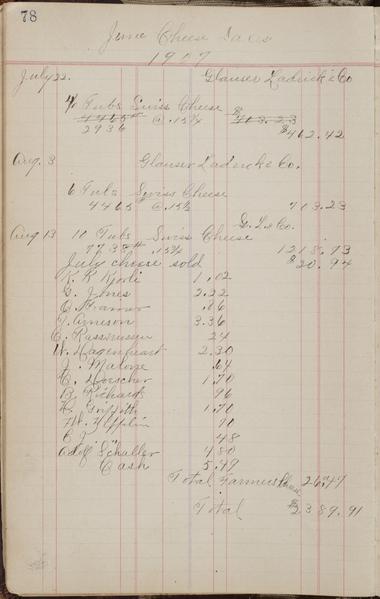 78
June Cheese Sales
1907
July 22. Glauser Ladrick & Co
4 Tubs Swiss Cheese $
4465# @ .15¾ 703.23
2936 $462.42
Aug. 3 Glauser Ladrick & Co.
6 Tubs Swiss Cheese
4465 @ .15¾ 703.23
G. L & Co.
Aug 13 10 Tubs Swiss Cheese
7738# .15¾ 1218.73
July cheese sold $20.94
K. K 1.02
G. Jones 2.22
.86
T. Arneson 3.36
C. Rassmussen 24
W. Hagenhearst 2.30
J. Malone .64
C. Hoescher 1.70
B. Richards 96
H. Griffith 1.70
W. 70
C J " 48
Adolf Schaller 4.80
Cash 5.49
Total Farmers 26.47
Total $2389.91